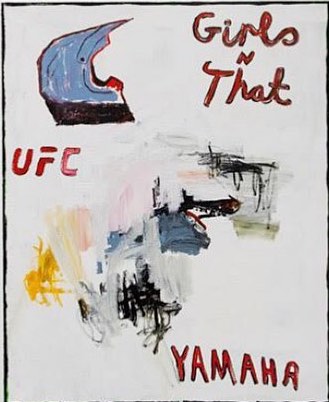 Girls
N
That
UFC
YAMAHA